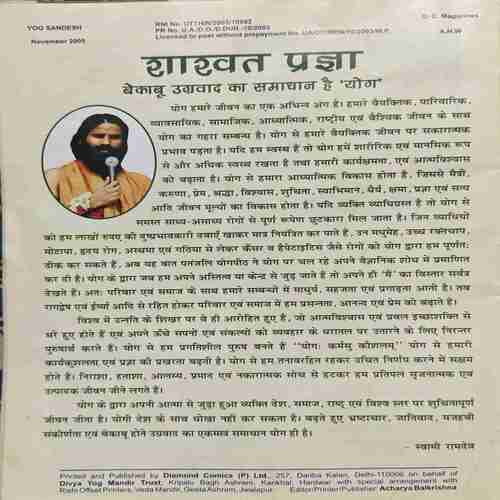 YOG SANDESH
November 2005
RNI No. UTTHIN/2003/10982
PR No. U.A./D.O./D.DUN.-16/2003
Licensed to post without prepayment No.
D. C. Magazines
A.H.W
शाश्वत प्रज्ञा
बेकाबू उग्रवाद का समाधान है 'योग'
योग हमारे जीवन का एक अभिन्न अंग है। हमारे वैयक्तिक, पारिवारिक,
व्यावसायिक, सामाजिक, आध्यात्मिक, राष्ट्रीय एवं वैश्विक जीवन के साथ
योग का गहरा सम्बन्ध है। योग से हमारे वैयक्तिक जीवन पर सकारात्मक
प्रभाव पड़ता है। यदि हम स्वस्थ हैं तो योग हमें शारीरिक एवं मानसिक रूप
से और अधिक स्वस्थ रखता है तथा हमारी कार्यक्षमता, एवं आत्मविश्वास
को बढ़ाता है। योग से हमारा आध्यात्मिक विकास होता है, जिससे मैत्री,
करुणा, प्रेम, श्रद्धा, विश्वास, शुचिता, स्वाभिमान, धैर्य, क्षमा, प्रज्ञा एवं सत्य
आदि जीवन मूल्यों का विकास होता है। यदि व्यक्ति व्याधिग्रस्त है तो योग से
समस्त साध्य-असाध्य रोगों से पूर्ण रूपेण छुटकारा मिल जाता है। जिन व्याधियों
को हम लाखों रुपए की दुष्प्रभावकारी दवाएँ खाकर मात्र नियंत्रित कर पाते हैं, उन मधुमेह, उच्च रक्तचाप,
मोटापा, हृदय रोग, अस्थमा एवं गठिया से लेकर कैंसर व हैपेटाइटिस जैसे रोगों को योग द्वारा हम पूर्णतः
ठीक कर सकते हैं, अब यह बात पतंजलि योगपीठ ने योग पर चल रहे अपने वैज्ञानिक शोध में प्रमाणित
कर दी है। योग के द्वारा जब हम अपने अस्तित्व या केन्द्र से जुड़ जाते हैं तो अपने ही 'मैं' का विस्तार सर्वत्र
देखते हैं। अतः परिवार एवं समाज के साथ हमारे सम्बन्धों में माधुर्य, सहजता एवं प्रगाढ़ता आती है। तब
रागद्वेष एवं ईर्ष्या आदि से रहित होकर परिवार एवं समाज में हम प्रसन्नता, आनन्द एवं प्रेम को बढ़ाते हैं।
विश्व में उन्नति के शिखर पर वे ही आरोहित हुए हैं, जो आत्मविश्वास एवं प्रबल इच्छाशक्ति से
भरे हुए होते हैं एवं अपने ऊँचे सपनों एवं संकल्पों को व्यवहार के धरातल पर उतारने के लिए निरन्तर
पुरुषार्थ करते हैं। योग से हम प्रगतिशील पुरुष बनते हैं ''योगः कर्मसु कौशलम्'' योग से हमारी
कार्यकुशलता एवं प्रज्ञा की प्रखरता बढ़ती है। योग से हम तनावरहित रहकर उचित निर्णय करने में सक्षम
होते हैं। निराशा, हताशा, आलस्य, प्रमाद एवं नकारात्मक सोच से हटकर हम प्रतिपल सृजनात्मक एवं
उत्पादक जीवन जीने लगते हैं।
योग के द्वारा अपनी आत्मा से जुड़ा हुआ व्यक्ति देश, समाज, राष्ट्र एवं विश्व स्तर पर शुचितापूर्ण
जीवन जीता है। योगी देश के साथ धोखा नहीं कर सकता है। बढ़ते हुए भ्रष्टाचार, जातिवाद, मजहबी
संकीर्णता एवं बेकाबू होते उग्रवाद का एकमात्र समाधान योग ही है।
– स्वामी रामदेव
Printed and Published by Diamond Comics (P) Ltd., 257, Dariba Kalan, Delhi-110006 on behalf of
Divya Yog Mandir Trust, Kripalu Bagh Ashram, Kankhal, Hardwar with special arrangement with
Rishi Offset Printers, Veda Mandir, Geeta Ashram, Jwalapur. Editor/Printer/Publisher: Acharya Balkrishna